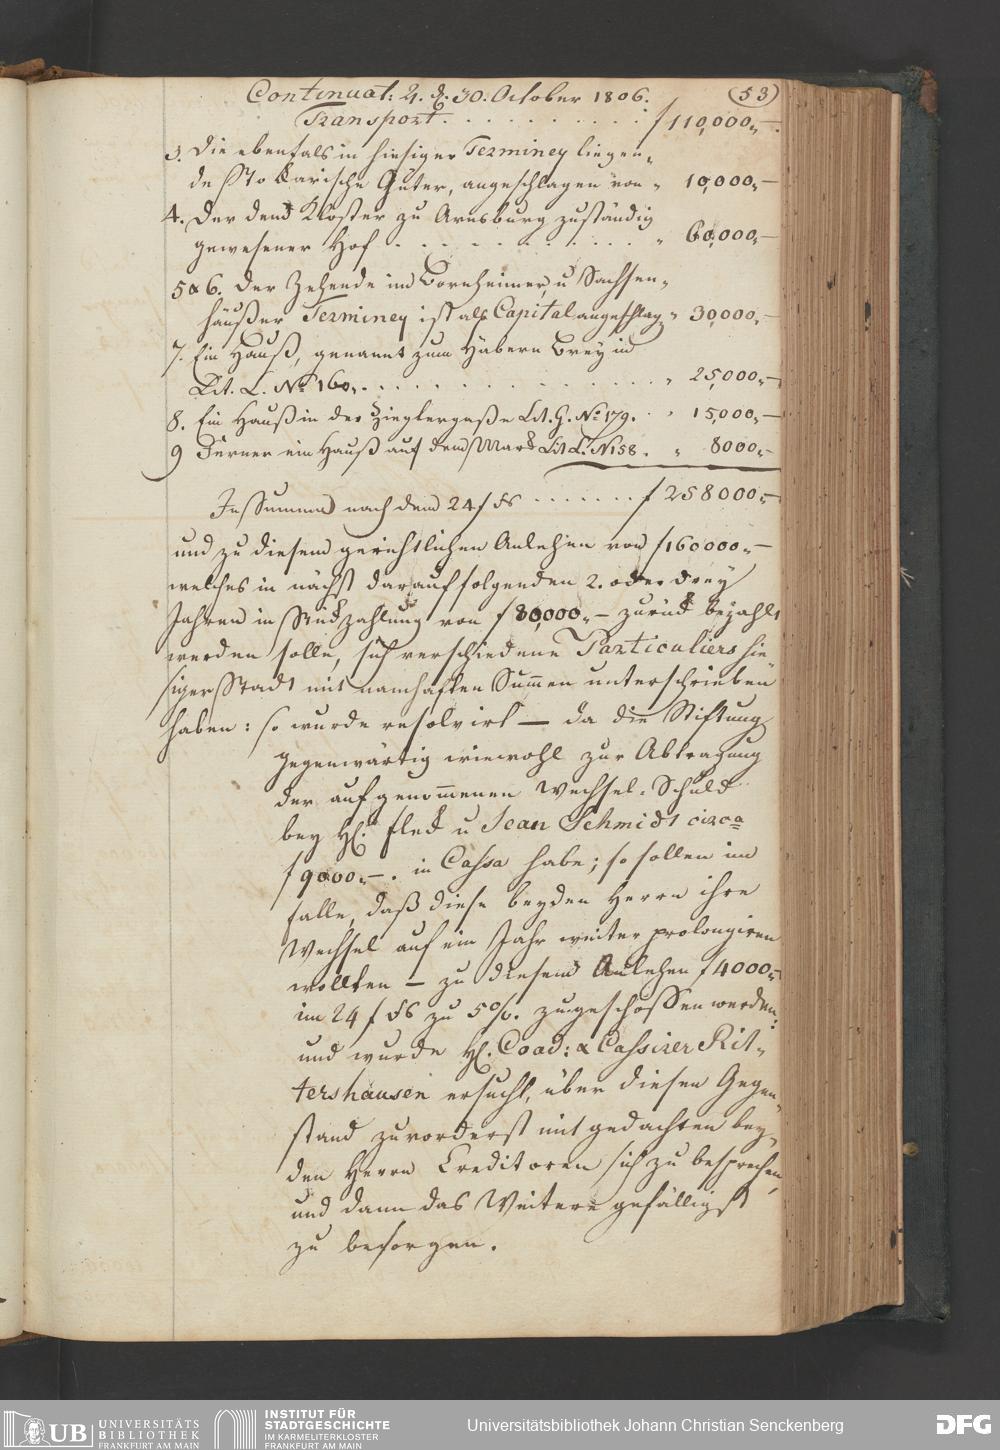 Continuat: 4. d. 30. October 1806.
53
Transport . . . . . . . . . . f 110,000,,—.
3. Die ebenfals in hiesiger Terminey liegen,,
de Karische Güter, angeschlagen von „ 10,000,,—
4. Der dem Kloster zu Arnsburg zuständig
gewesener Hof . . . . . . . . . . „ 60,000,,—
5 & 6. Der Zehende im Bornheimer, u Sachsen,,
häußer Terminey ist als Capital angeschlag. „ 30,000,,—
7. Ein Hauß, genannt zum Habern Brey in
Lit. L. No 160,. . . . . . . . . . . „ 25,000,,—
8. Ein Hauß in der Zieglergaße Lit. G. No 179. . „ 15,000,,—
9 Ferner ein Hauß auf dem Mark Lit L. N 158 . „ 8000,,—
In Summa nach dem 24 f fs . . . . . . . f 258000,,—
und zu diesem gerichtlichen Anlehen von f 160000,,—
welches in nächst darauf folgenden 2. oder drey
Jahren in Rückzahlung von f 80,000,,— zurück bezahlt
werden solle, sich verschiedene Particuliers hie,,
siger Stadt mit namhaften Summen unterschrieben
haben: so wurde resolvirt — da die Stiftung
gegenwärtig wiewohl zur Abtragung
der aufgenommenen Wechsel-Schuld
bey H. fleck u Jean Schmidt circa
f 9000,,—. in Cassa habe; so sollen im
falle, daß diese beyden Herrn ihre
Wechsel auf ein Jahr weiter prolongiren
wollten — zu diesem Anlehen f 4000,,—
im 24 f fs zu 5 %. zugeschossen werden:
und wurde H. Coad: & Cassirer Rit,,
tershausen ersucht, über diesen Gegen,,
stand zuvorderst mit gedachten bey,,
den Herrn Creditoren sich zu besprechen,
und dann das Weitere gefälligst
zu besorgen.
UB UNIVERSITÄTS
BIBLIOTHEK
FRANKFURT AM MAIN
INSTITUT FÜR
STADTGESCHICHTE
IM KARMELITERKLOSTER
FRANKFURT AM MAIN
Universitätsbibliothek Johann Christian Senckenberg
DFG